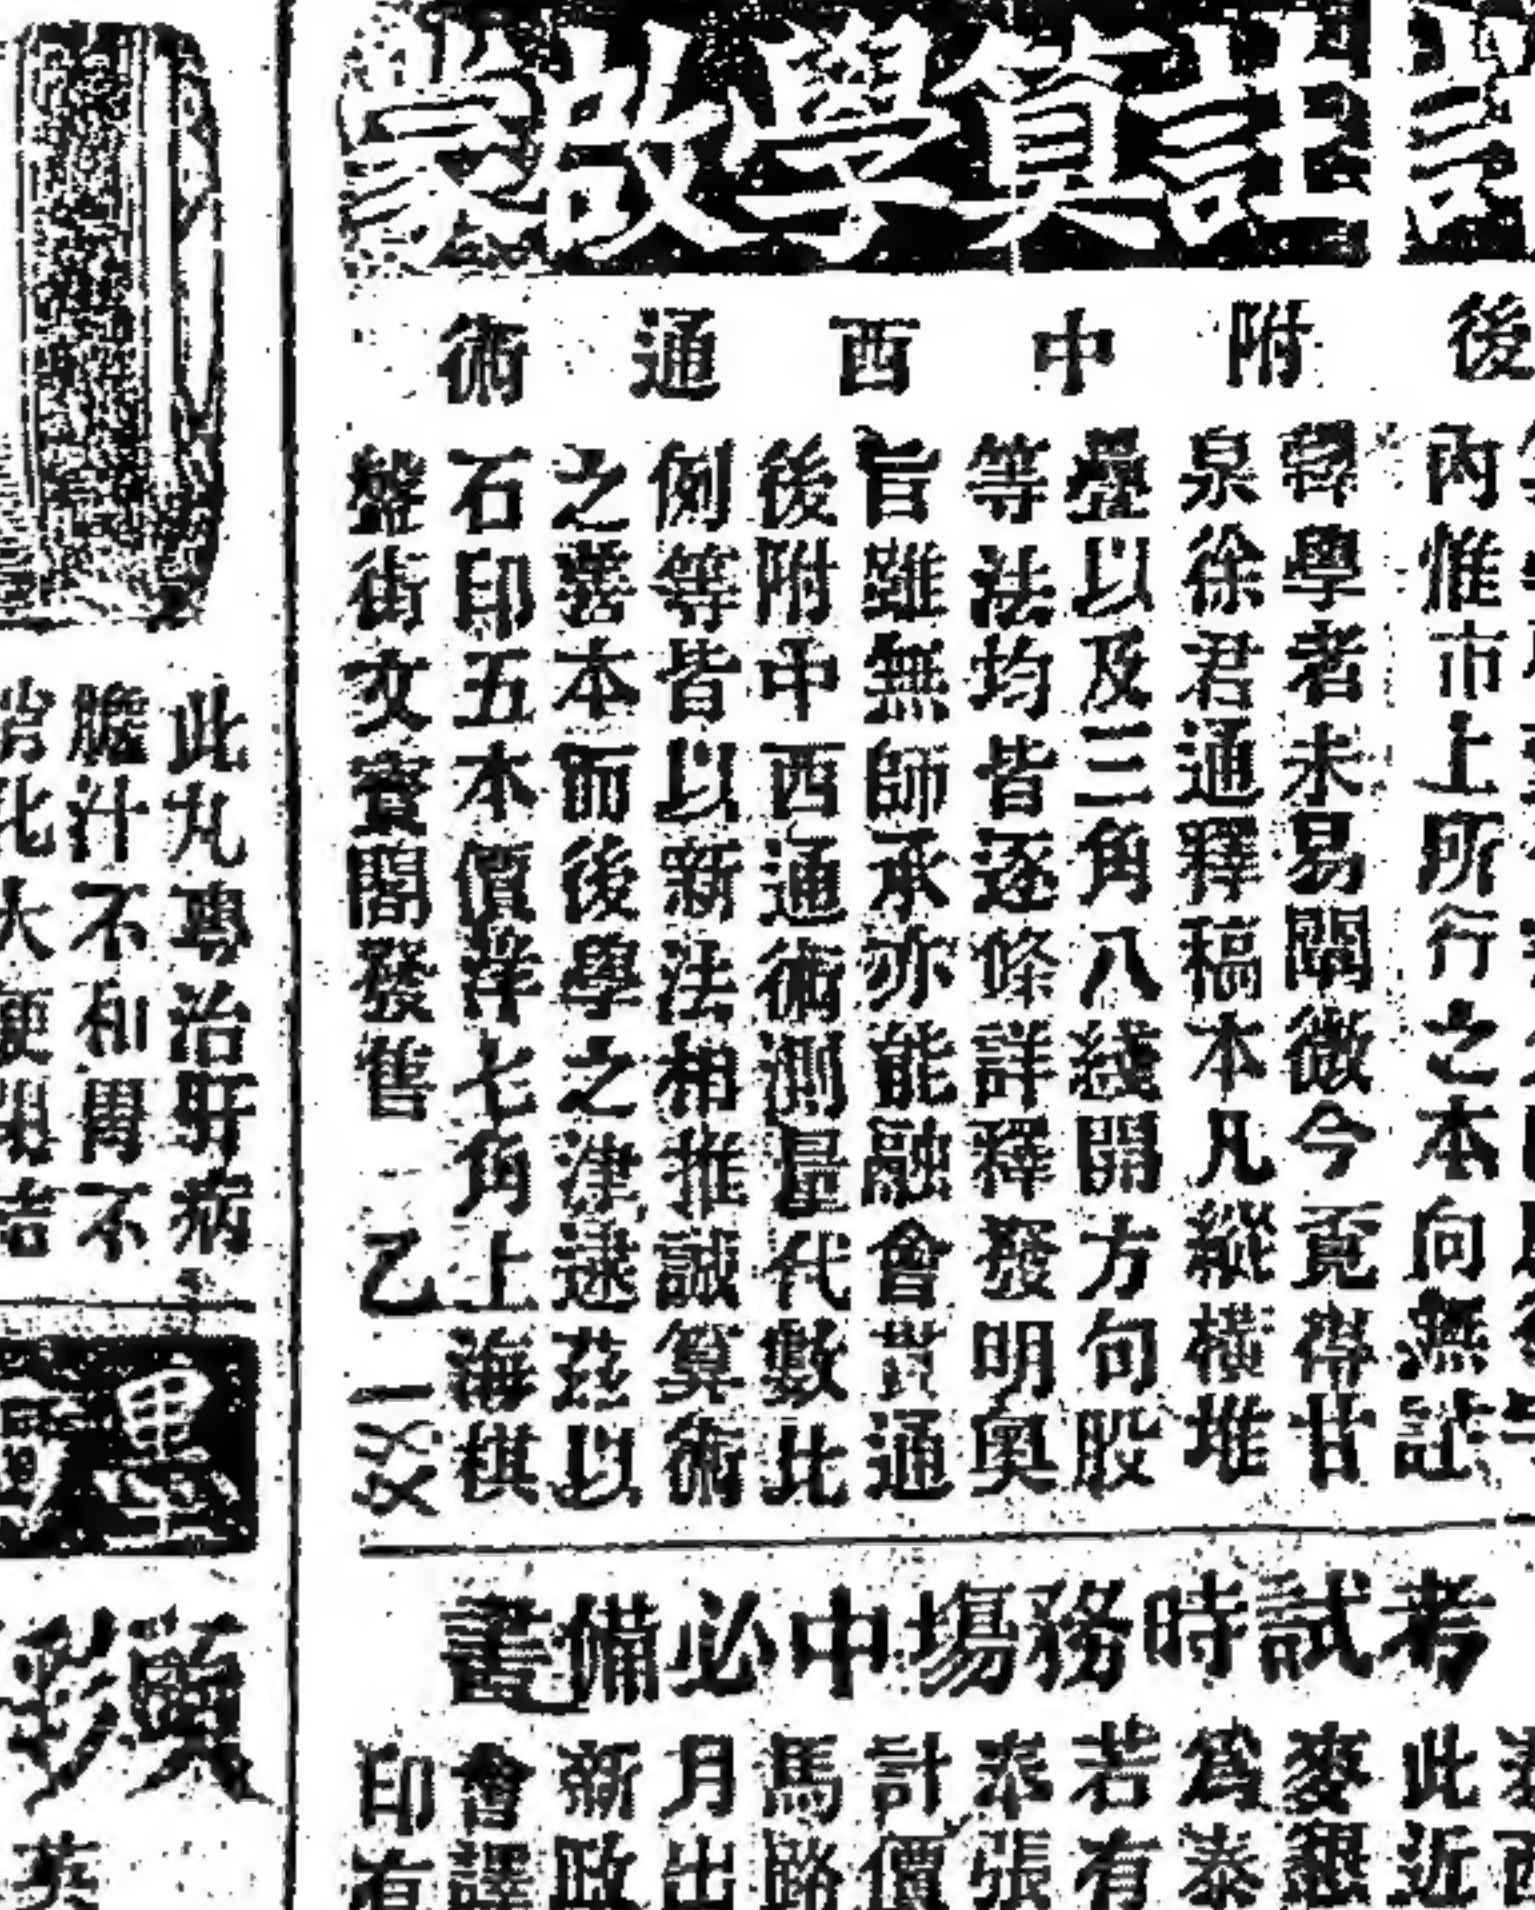 註算學啟蒙
後附中西通術
內惟市上所行之本向無註
釋學者未易闡微今覓得甘
泉徐君通釋稿本凡縱橫堆
疊以及三角八綫開方句股
等法均皆逐條詳釋發明奧
旨雖無師承亦能融會貫通
後附中西通術測量代數比
例等皆以新法相推誠算術
之善本而後學之津逮茲以
石印五本價洋七角上海棋
盤街文寶閣發售 乙
考試時務場中必備書
此近
麥懇
為泰
若有
泰張
計價
馬路
月出
新政
會譯
印有
此丸專治肝病
膽汁不和胃不
消化大便閉結
墨